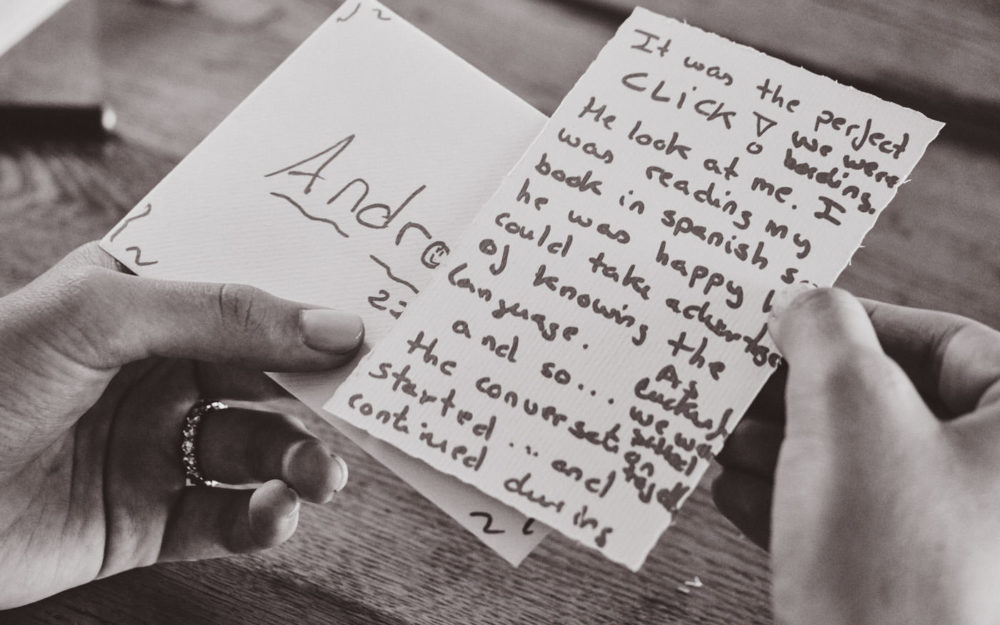 Andre
It was the perfect
CLICK! we were
bording.
He look at me. I
was reading my
book in spanish so
he was happy
could take
of knowing the
language. As
luckily
and so... we were
the conversation
started... and
continued during